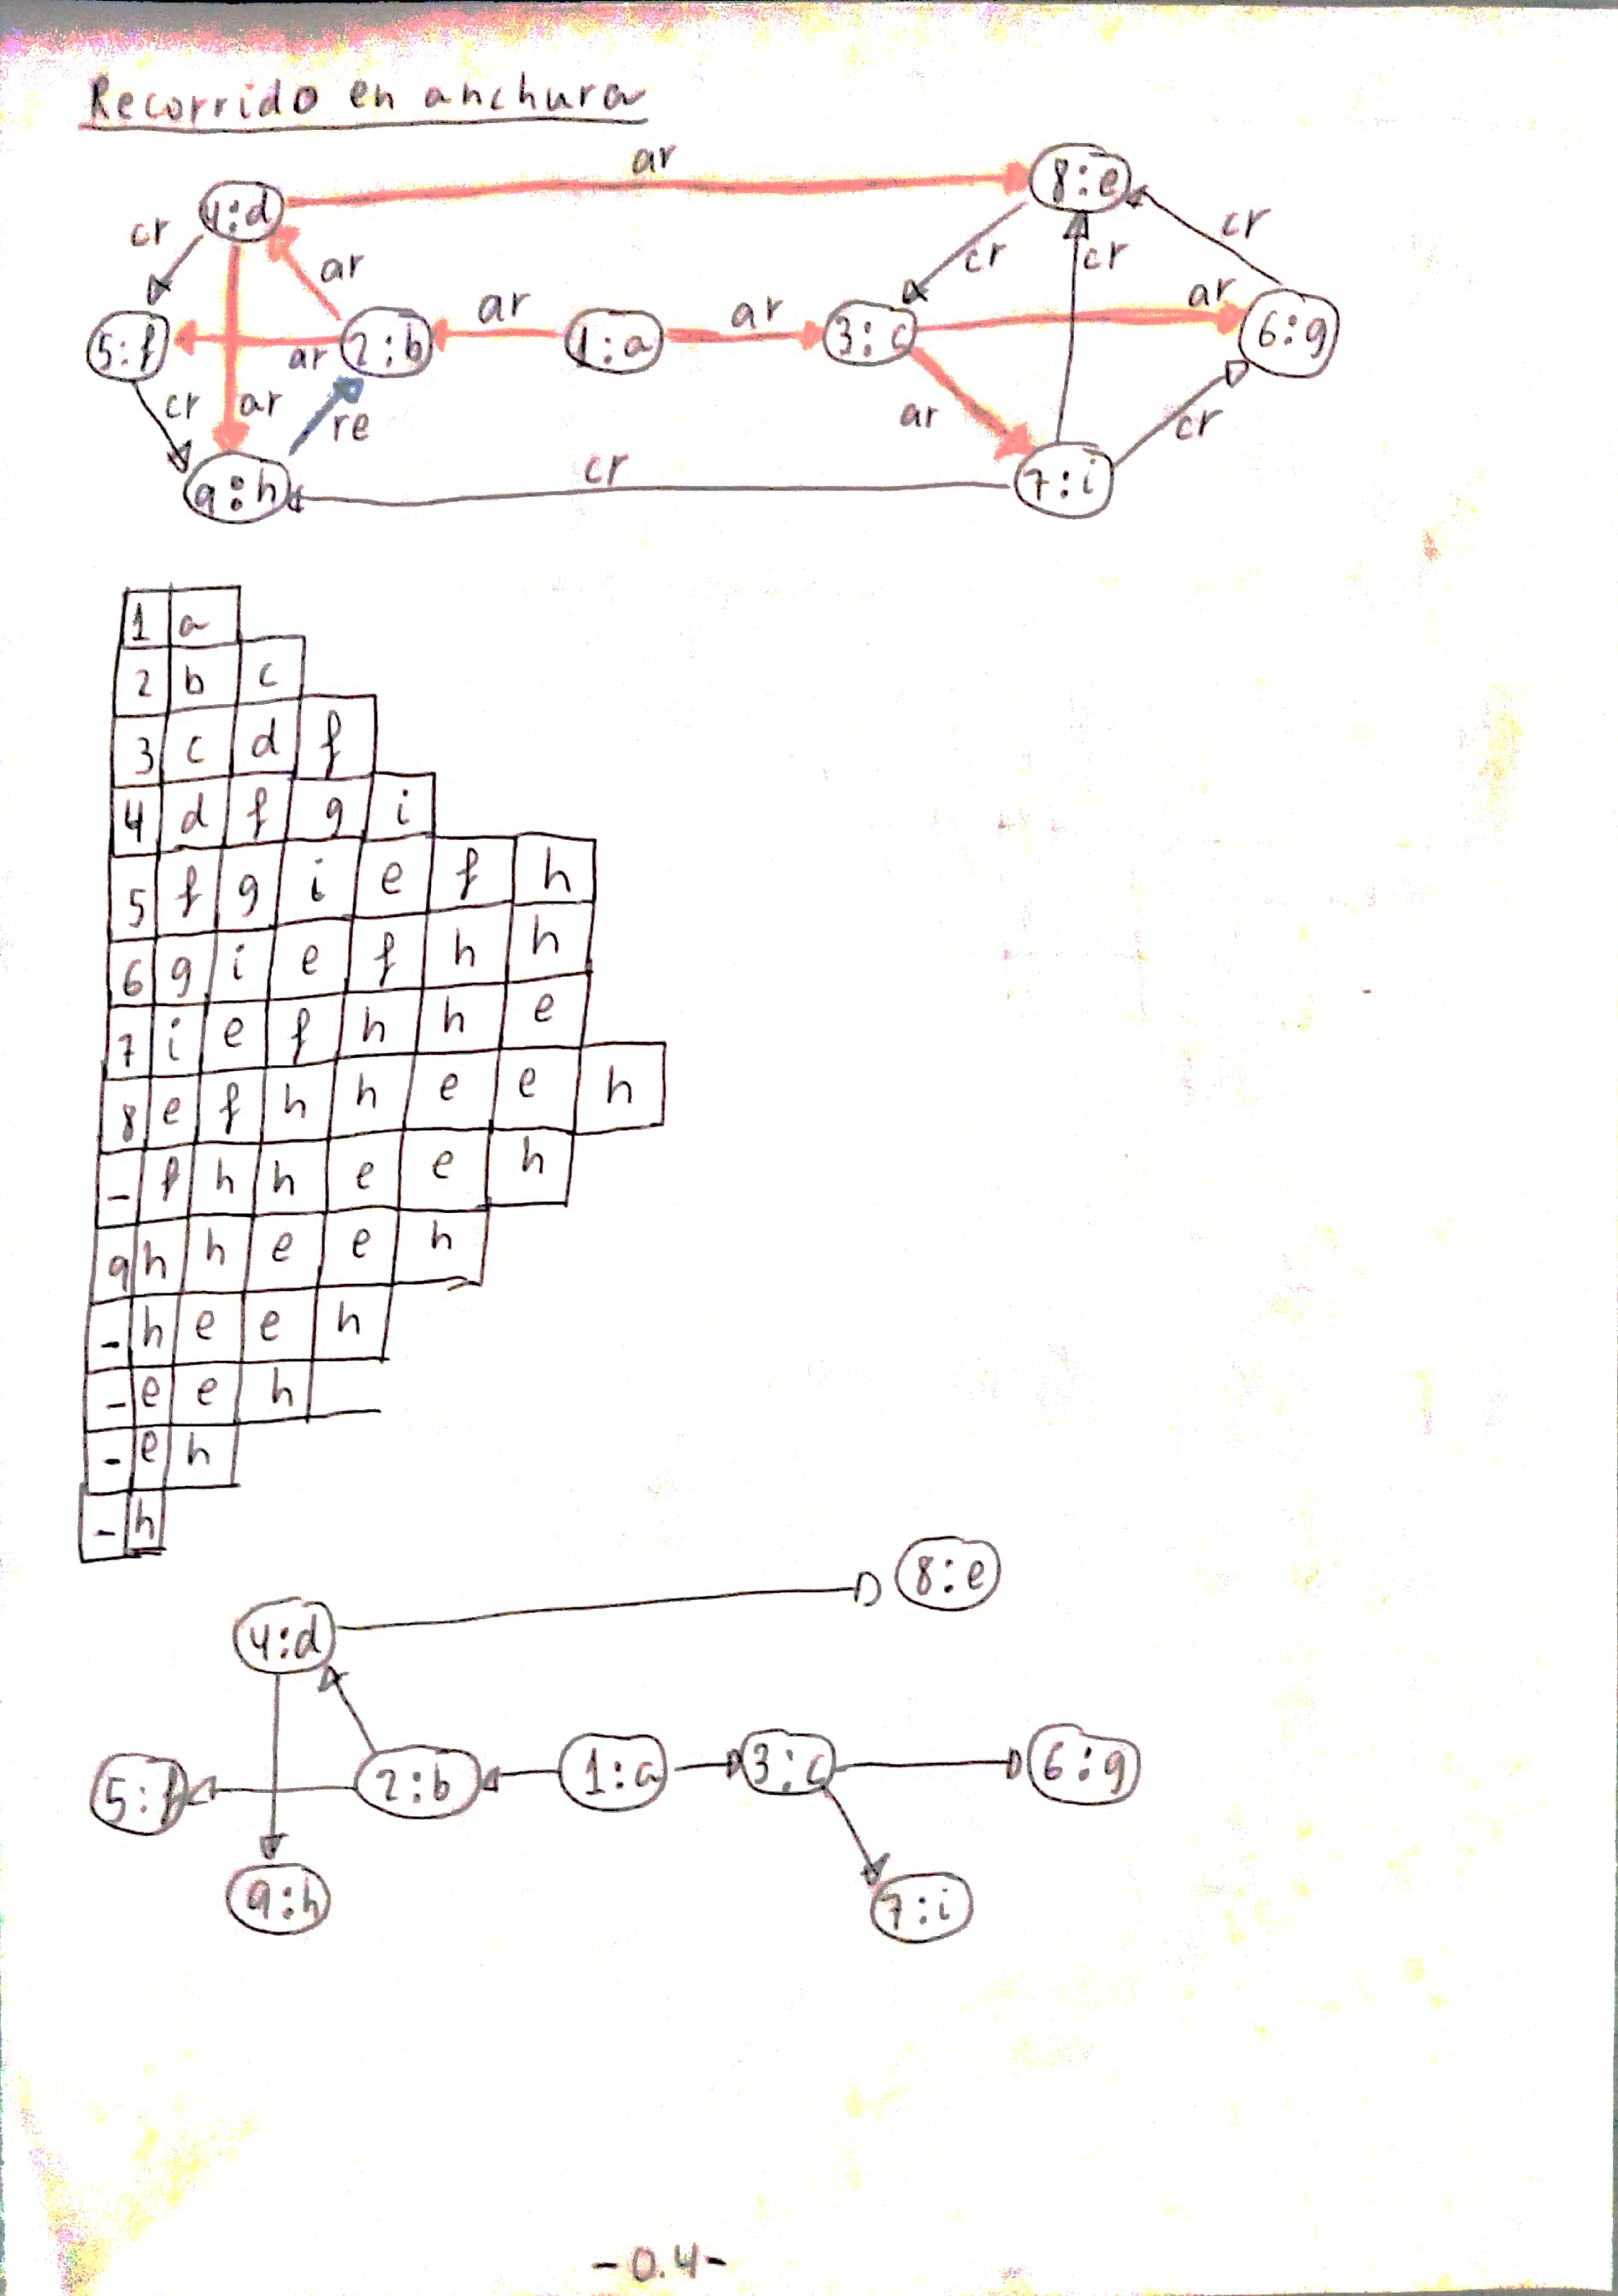 Recorrido en anchura
ar
4:d
8:e
cr
ar
cr
cr
cr
5:f
ar
2:b
ar
1:a
ar
3:c
ar
6:g
cr
ar
re
ar
cr
9:h
cr
7:i
1 a
2 b c
3 c d f
4 d f g i
5 f g i e f h
6 g i e f h h
7 i e f h h e
8 e f h h e e h
- f h h e e h
9 h h e e h
- h e e h
- e e h
- e h
- h
8:e
4:d
5:f 2:b 1:a 3:c 6:g
9:h 7:i
-0.4-